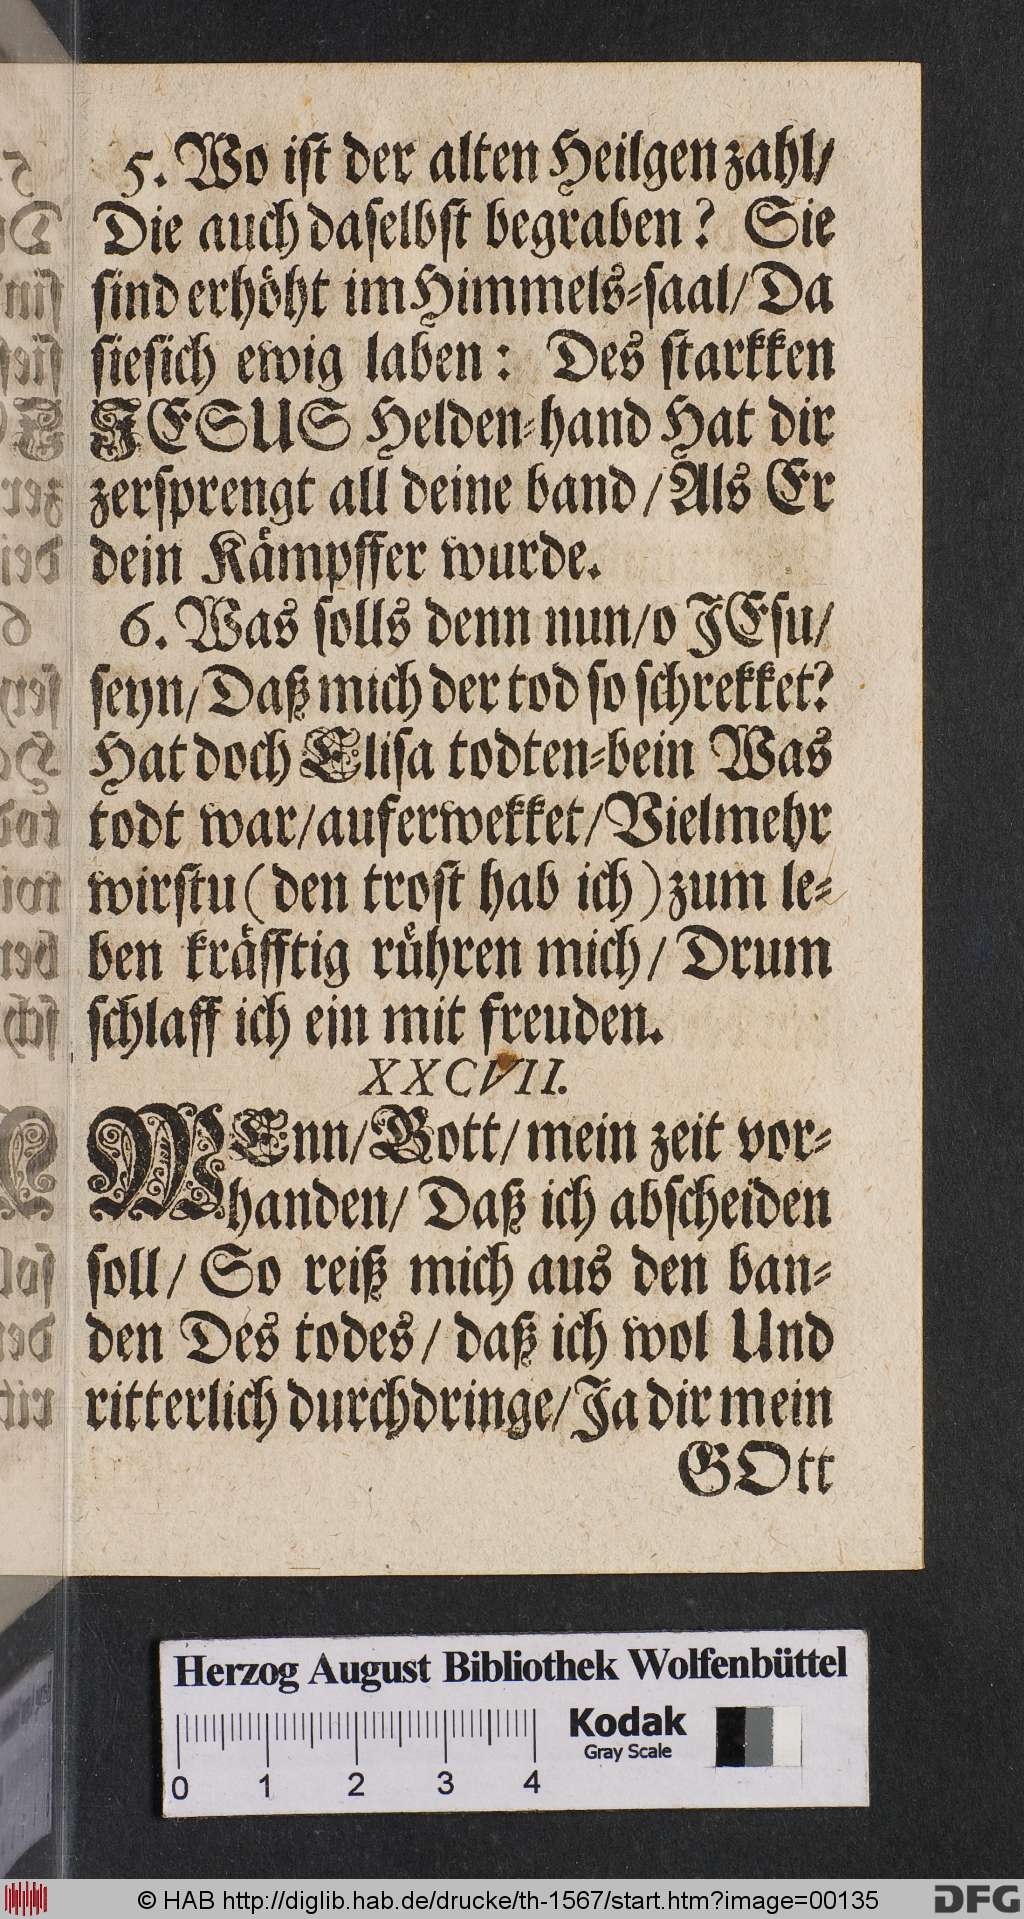 5. Wo ist der alten Heilgen zahl/
Die auch daselbst begraben? Sie
sind erhöht im Himmels-saal/ Da
sie sich ewig laben: Des starkken
JESUS Helden-hand Hat dir
zersprengt all deine band/ Als Er
dein Kämpffer wurde.
6. Was solls denn nun/ o JEsu/
seyn/ Daß mich der tod so schrekket?
Hat doch Elisa todten-bein Was
todt war/ auferwekket/ Vielmehr
wirstu (den trost hab ich) zum le-
ben kräfftig rühren mich/ Drum
schlaff ich ein mit freuden.
XXCVII.
WEnn/ Gott/ mein zeit vor-
handen/ Daß ich abscheiden
soll/ So reiß mich aus den ban-
den Des todes/ daß ich wol Und
ritterlich durchdringe/ Ja dir mein
GOtt
Herzog August Bibliothek Wolfenbüttel
Kodak
Gray Scale
0 1 2 3 4
© HAB http://diglib.hab.de/drucke/th-1567/start.htm?image=00135
DFG